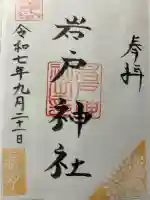 奉拝
岩戸神社
令和七年九月二十一日